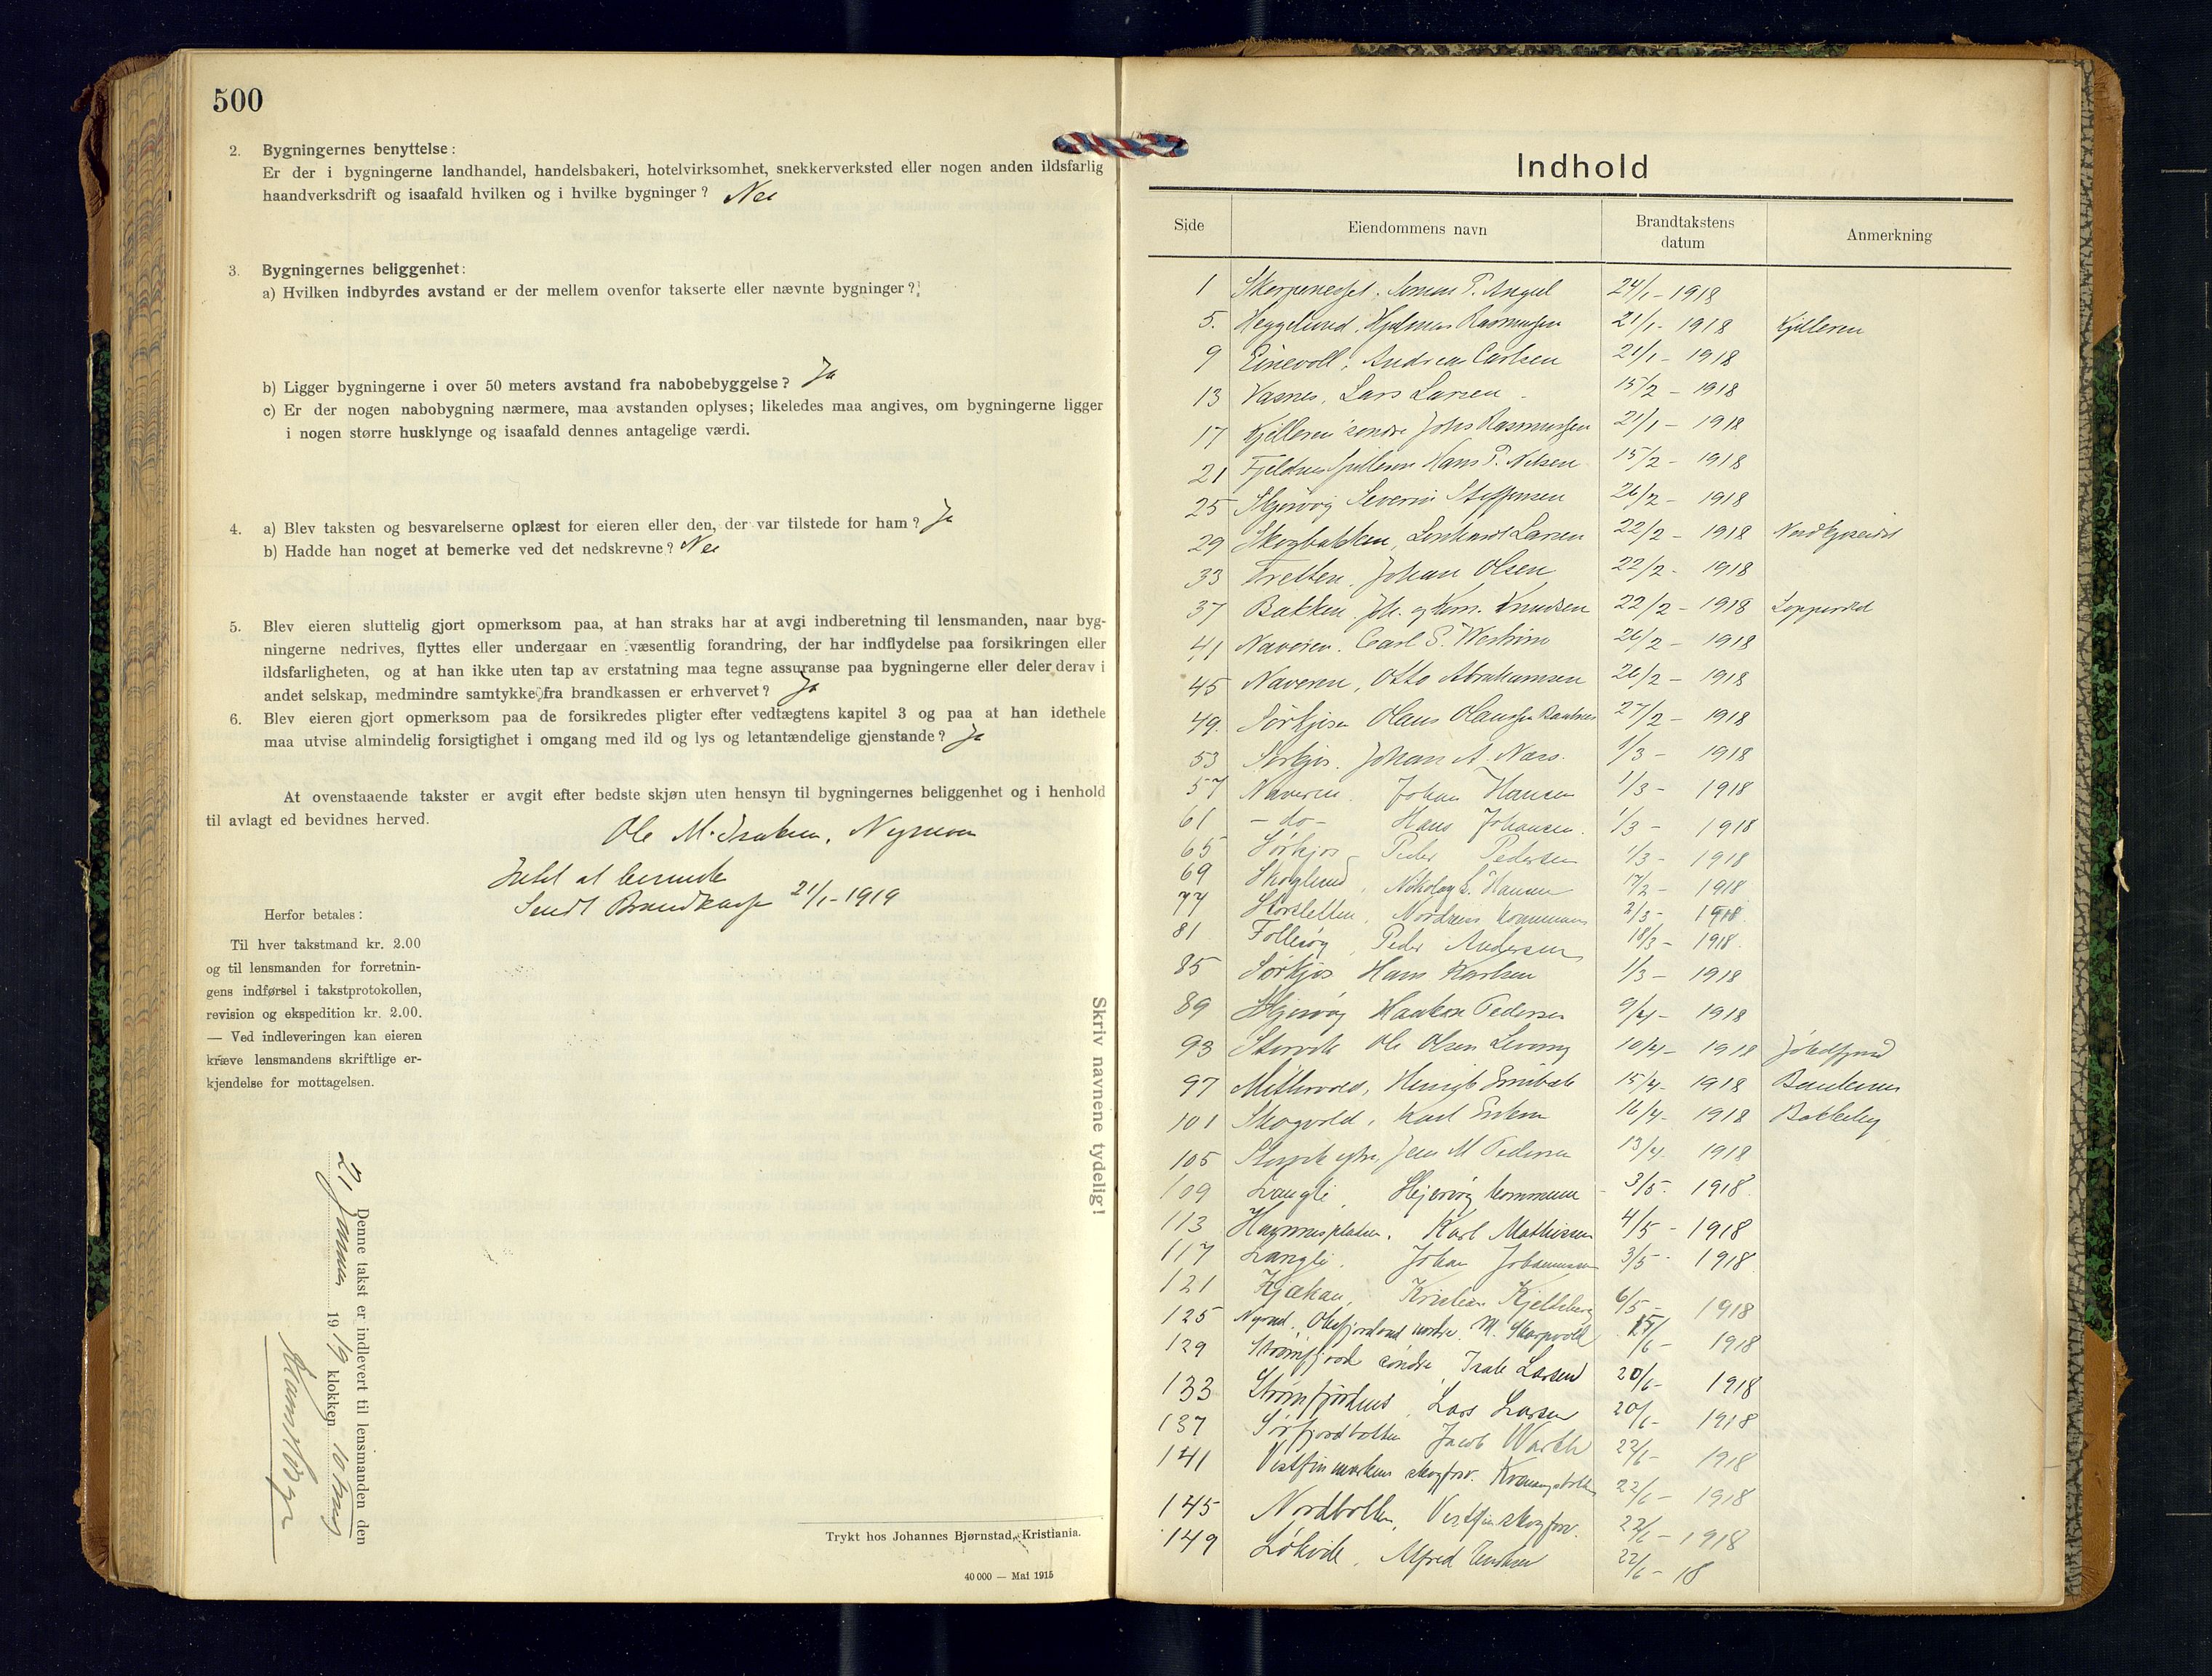 500
2. Bygningernes benyttelse:
Er der i bygningerne landhandel, handelsbakeri, hotelvirksomhet, snekkerverksted eller nogen anden ildsfarlig
haandverksdrift og isaafald hvilken og i hvilke bygninger? Nei
3. Bygningernes beliggenhet:
a) Hvilken indbyrdes avstand er der mellem ovenfor takserte eller nævnte bygninger?
b) Ligger bygningerne i over 50 meters avstand fra nabobebyggelse? Ja
c) Er der nogen nabobygning nærmere, maa avstanden oplyses; likeledes maa angives, om bygningerne ligger
i nogen større husklynge og isaafald dennes antagelige værdi.
4. a) Blev taksten og besvarelserne oplæst for eieren eller den, der var tilstede for ham? Ja
b) Hadde han noget at bemerke ved det nedskrevne? Nei
5. Blev eieren sluttelig gjort opmerksom paa, at han straks har at avgi indberetning til lensmanden, naar byg-
ningerne nedrives, flyttes eller undergaar en væsentlig forandring, der har indflydelse paa forsikringen eller
ildsfarligheten, og at han ikke uten tap av erstatning maa tegne assuranse paa bygningerne eller deler derav i
andet selskap, medmindre samtykke fra brandkassen er erhvervet? Ja
6. Blev eieren gjort opmerksom paa de forsikredes pligter efter vedtægtens kapitel 3 og paa at han idethele
maa utvise almindelig forsigtighet i omgang med ild og lys og letantændelige gjenstande? Ja
At ovenstaaende takster er avgit efter bedste skjøn uten hensyn til bygningernes beliggenhet og i henhold
til avlagt ed bevidnes herved.
Ole M. Isaksen,
Intet at bemerke
Sendt Brandkassen 21/1-1919
Herfor betales:
Til hver takstmand kr. 2.00
og til lensmanden for forretnin-
gens indførsel i takstprotokollen,
revision og ekspedition kr. 2.00.
— Ved indleveringen kan eieren
kræve lensmandens skriftlige er-
kjendelse for mottagelsen.
Denne takst er indlevert til lensmanden den
21 Januar 1919 klokken 10
Skriv navnene tydelig!
Trykt hos Johannes Bjørnstad, Kristiania.
40 000 — Mai 1915
Indhold
Side Eiendommens navn Brandtakstens datum Anmerkning
1 Skarpenesset. 24/1-1918
5. Heggelund, Hjalmar Rasmussen 21/1-1918 Kjilleren
9 Einevoll, Andrea Carlsen 21/1-1918
13 Vasnes, Lars Larsen 15/2-1918
17 Kjelleren søndre Johs Rasmussen 21/1-1918
21 Hans P. Nilsen 15/2-1918
25 Skjervøy Severin Steffensen 26/2-1918
29 Skogbakken, Larsen 22/2-1918
33 Tretten. Johan Olsen 22/2-1918
37 Bakken. Joh. og Knudsen 22/2-1918
41 Naveren. Carl S. 26/2-1918
45 Naveren, Otto Abrahamsen 26/2-1918
49. Sørkjosen Olaus 27/2-1918
53 Sørkjos. Johan A. Næss. 1/3-1918
57 Naveren. Johan Hansen 1/3-1918
61 -do- Hans Johansen. 1/3-1918
65 Sørkjos Peder Pedersen 1/3-1918
69 Skoglund, Nikolay L. Hansen 17/2-1918
77 Storsletten, Nordreisa kommune 2/3-1918
81 Follesøy, Peder Andersen 18/3-1918.
85 Sørkjos Hans Karlsen 1/3-1918
89 Skjervøy Haakon Pedersen 9/4-1918
93 Storvik Ole Olsen 10/4-1918 Jøkelfjord
97 15/4-1918
101 Skogvold, Karl 16/4-1918 Bakkeby
105 Storvik Jens M Pedersen 13/4 1918
109 Langli, Skjervøy kommune 3/5-1918.
113 Karl Mathiesen 4/5-1918
117 Langli. Johan Johannessen 3/5-1918
121 Kjækan, Kristian 6/5-1918
125 Oksfjordvand nordre. M. Skarpvoll 15/6-1918
129 Strømfjord søndre, Isak Larsen 20/6-1918
133 Lars Larsen 20/6-1918
137 Sørfjordbotten Jacob 22/6-1918
141 Vestfinmarkens skogforv. 22/6-1918
145 Nordbotten, Vestfin skogforv. 22/6-1918
149 Løkvik, Alfred 22/6-18